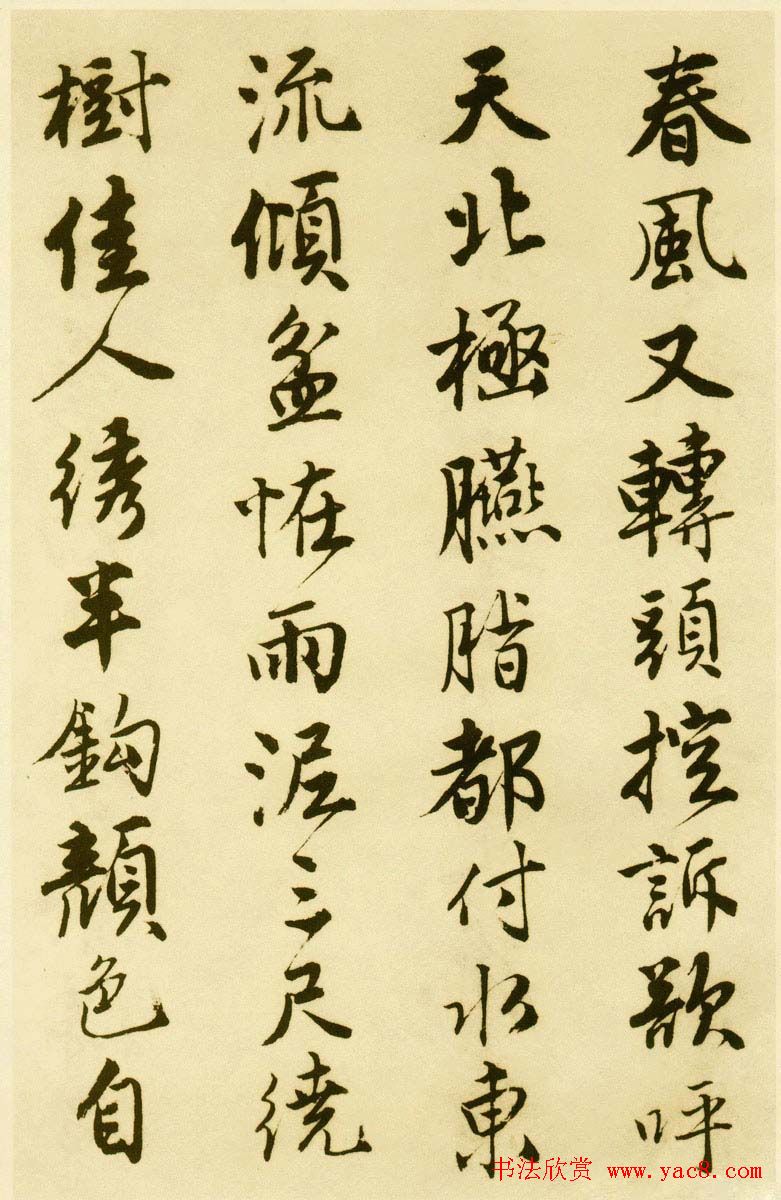 春風又轉頭控訴歆呼
天北極臙脂都付水東
流傾盆怪雨泥三尺繞
樹佳人綉半鈎顏色自
书法欣赏 www.yac8.com